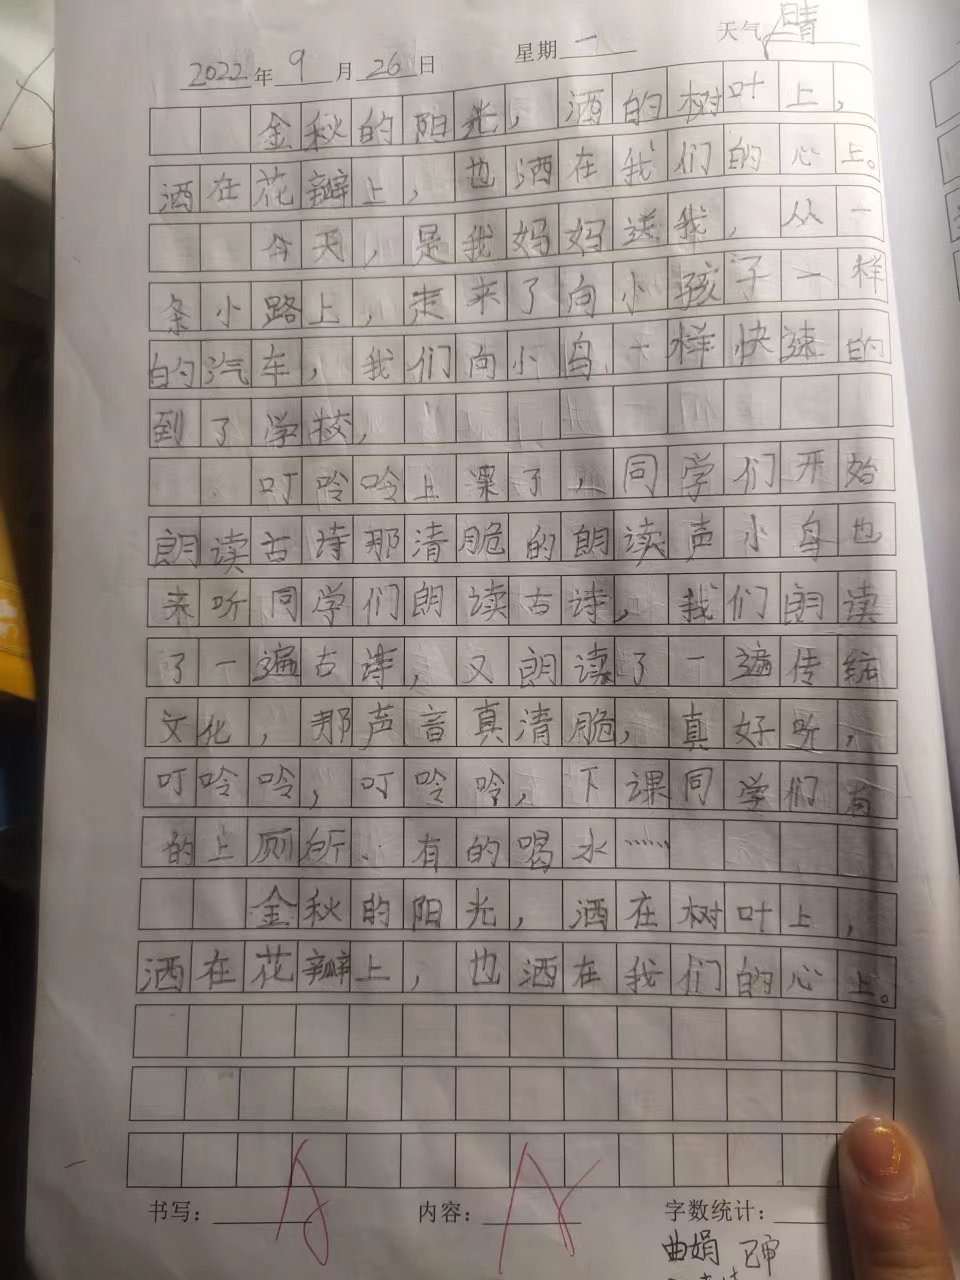 2022年9月26日 星期一 天气晴
金秋的阳光，洒的树叶上，
洒在花瓣上，也洒在我们的心上。
今天，是我妈妈送我，从一
条小路上，走来了向小孩子一样
的汽车，我们向小鸟一样快速的
到了学校，
叮呤呤上课了，同学们开始
朗读古诗那清脆的朗读声小鸟也
来听同学们朗读古诗，我们朗读
了一遍古诗，又朗读了一遍传统
文化，那声音真清脆，真好听，
叮呤呤，叮呤呤，下课同学们有
的上厕所..有的喝水……
金秋的阳光，洒在树叶上，
洒在花瓣上，也洒在我们的心上。
书写：A 内容：A 字数统计：
曲娟 已审